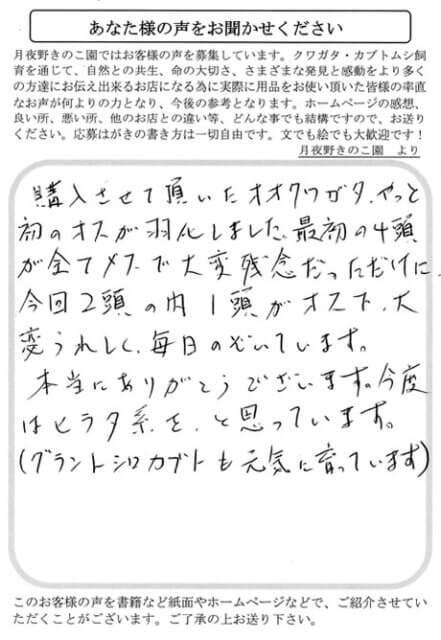 あなた様の声をお聞かせください
月夜野きのこ園ではお客様の声を募集しています。クワガタ・カブトムシ飼
育を通じて、自然との共生、命の大切さ、さまざまな発見と感動をより多く
の方達にお伝え出来るお店になる為に実際に用品をお使い頂いた皆様の率直
なお声が何よりの力となり、今後の参考となります。ホームページの感想、
良い所、悪い所、他のお店との違い等、どんな事でも結構ですので、お送り
ください。応募はがきの書き方は一切自由です。文でも絵でも大歓迎です！
月夜野きのこ園 より
購入させて頂いたオオクワガタ、やっと
初のオスが羽化しました、最初の4頭
が全てメスで大変残念だっただけに、
今回2頭の内1頭がオスで、大
変うれしく、毎日のぞいています。
本当にありがとうございます。今度
はヒラタ系を、と思っています。
(グラントシロカブトも元気に育っています)
このお客様の声を書籍など紙面やホームページなどで、ご紹介させてい
ただくことがございます。ご了承の上お送り下さい。